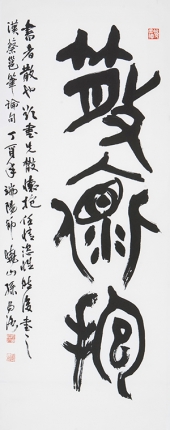 散懷抱
書者散也欲書先散懷抱任情恣性然後書之
漢蔡邕筆論句 丁亥年端陽節 曉山孫